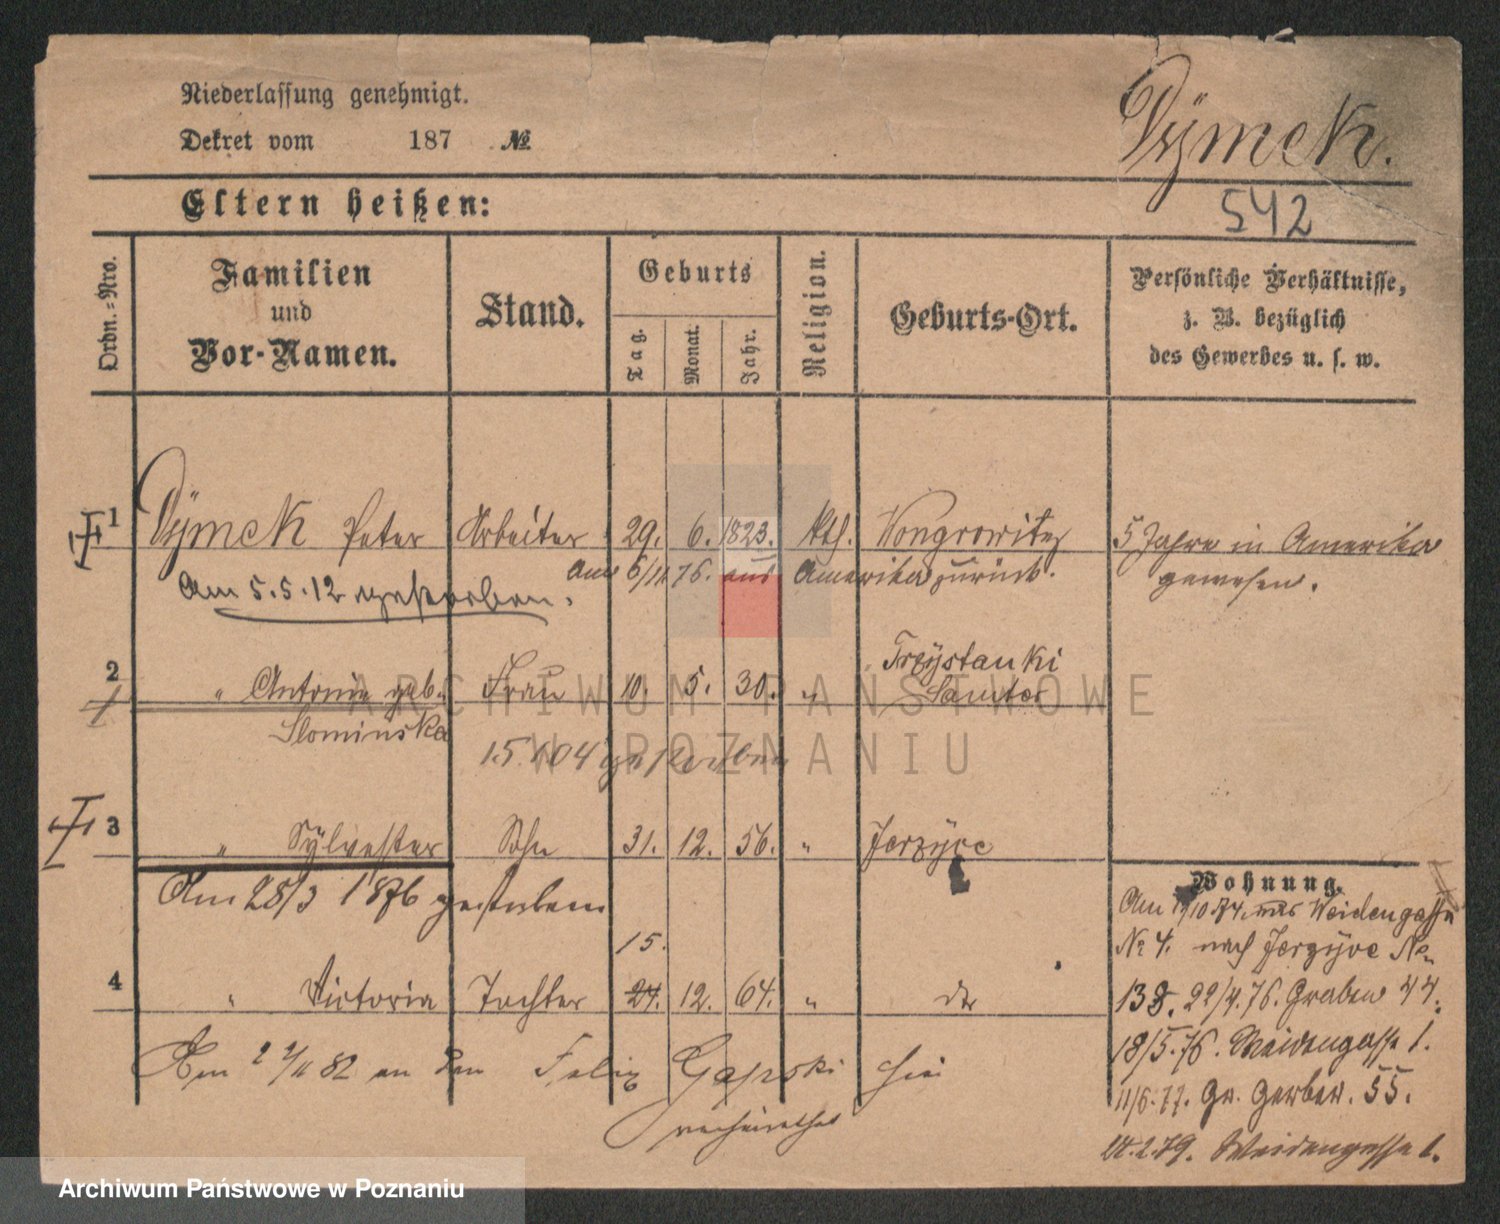 Niederlassung genehmigt.
Dekret vom 187 №
Dÿmek.
Eltern heißen:
542
Ordn.-Nro.
Familien
und
Vor-Namen.
Stand.
Geburts
Tag.
Monat.
Jahr.
Religion.
Geburts-Ort.
Persönliche Verhältnisse,
z. B. bezüglich
des Gewerbes u. s. w.
1 Dÿmek Peter Arbeiter 29. 6. 1823. kth. Wongrowitz 5 Jahre in Amerika
gewesen.
am 6/11 76. aus Amerika zurück.
Am 5.5.12 gestorben.
2 " Antonie geb. Frau 10. 5. 30. " Trzÿstanki
Samter
Slominska
15. 04 gestorben
3 " Sÿlvester Sohn 31. 12. 56. " Jerzÿce
Am 28/3 1876 gestorben
15.
4 " Victoria Tochter 24. 12. 64. " dto
Am 2 2/11 82 an den Felix Gapski hier
verheirathet
Wohnung.
Am 10 74. aus Weidengasse
№ 4. nach Jerzÿce No
138. 22/4. 76. Graben 44.
18/5. 76. Weidengasse 1.
11/6. 77. Gr. Gerber. 55.
2. 79. Weidengasse 1.
ARCHIWUM PAŃSTWOWE
W POZNANIU
Archiwum Państwowe w Poznaniu